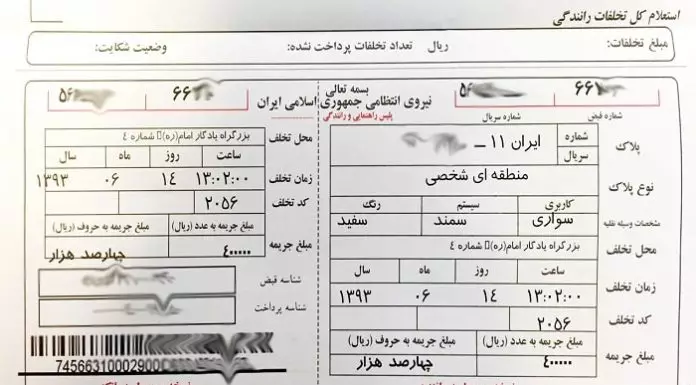 استعلام کل تخلفات رانندگی
مبلغ تخلفات: ریال تعداد تخلفات پرداخت نشده: وضعیت شکایت:
بسمه تعالی
نیروی انتظامی جمهوری اسلامی ایران
پلیس راهنمایی و رانندگی
شماره قبض
شماره سریال
پلاک
شماره
سریال
ایران ۱۱ ــ
نوع پلاک
منطقه ای شخصی
مشخصات وسیله نقلیه
کاربری سیستم رنگ
سواری سمند سفید
محل تخلف
بزرگراه یادگار امام(ره)▯ شماره ٤
زمان تخلف
ساعت روز ماه سال
۱۳:۰۲:۰۰ ۱۴ ۰۶ ۱۳۹۳
کد تخلف
۲۰۵۶
مبلغ جریمه
مبلغ جریمه به عدد (ریال) مبلغ جریمه به حروف (ریال)
۴۰۰۰۰۰ چهارصد هزار
محل تخلف
بزرگراه یادگار امام(ره)▯ شماره ٤
زمان تخلف
ساعت روز ماه سال
۱۳:۰۲:۰۰ ۱۴ ۰۶ ۱۳۹۳
کد تخلف
۲۰۵۶
مبلغ جریمه
مبلغ جریمه به عدد (ریال) مبلغ جریمه به حروف (ریال)
۴۰۰۰۰۰ چهارصد هزار
شناسه قبض
شناسه پرداخت